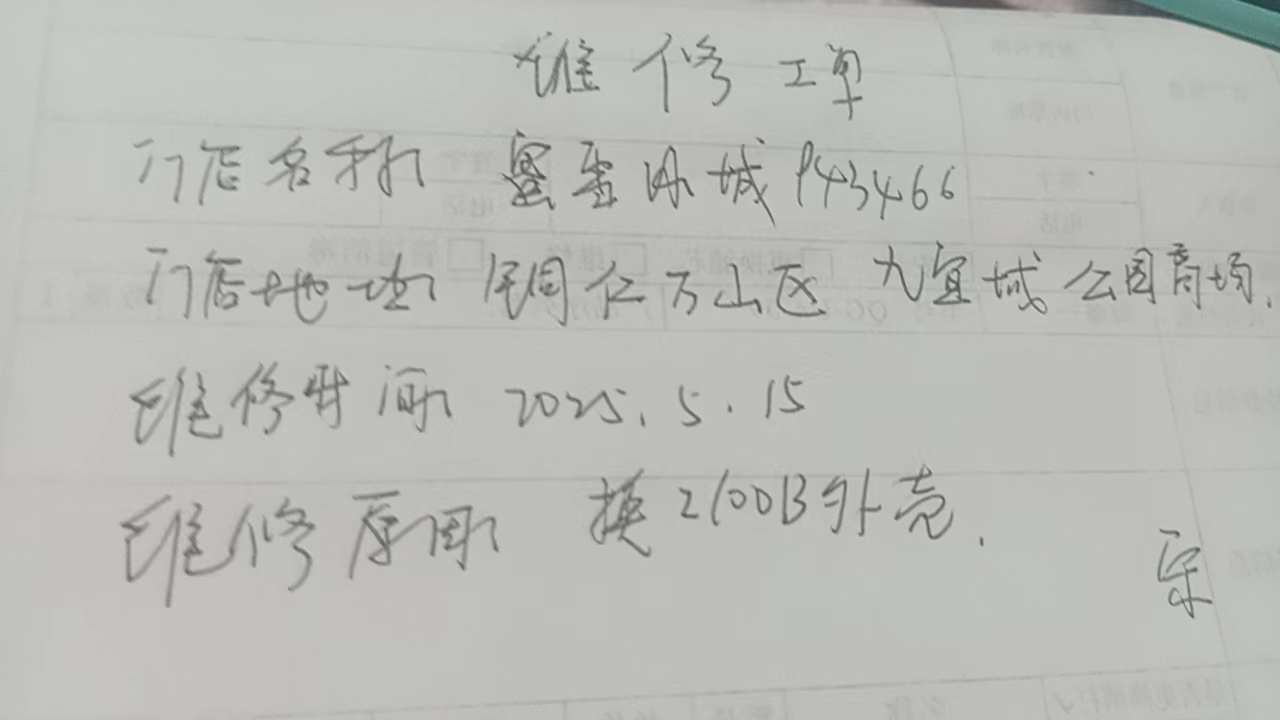 维修工单
门店名称 蜜雪冰城 P43466
门店地址 铜仁万山区 九宜城公园商场.
维修时间 2025.5.15
维修原因 换2100B外壳.
宋